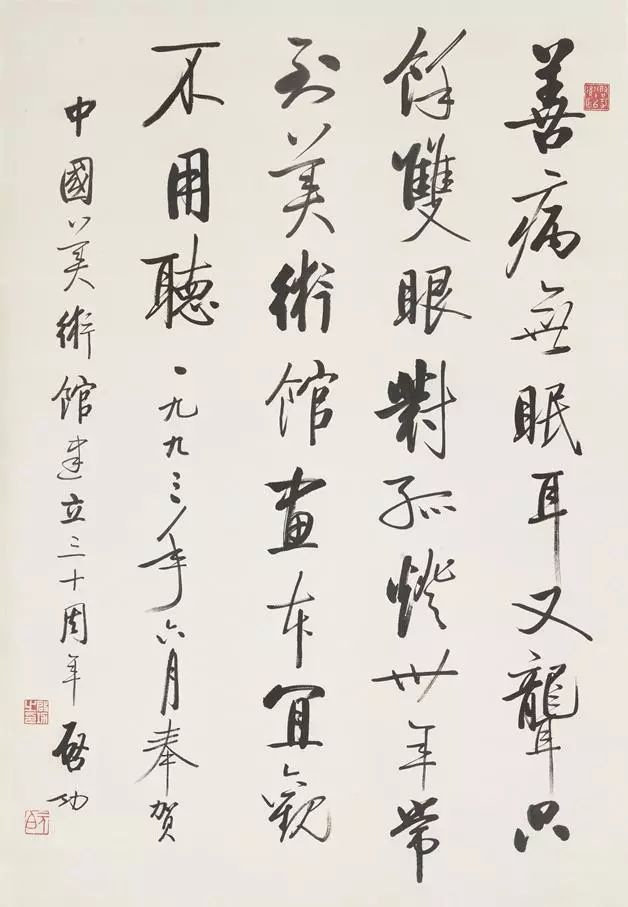 善病無眠耳又聾只
餘雙眼對孤燈卅年常
到美術館畫本宜觀
不用聽一九九三年六月奉賀
中國美術館建立三十周年啓功